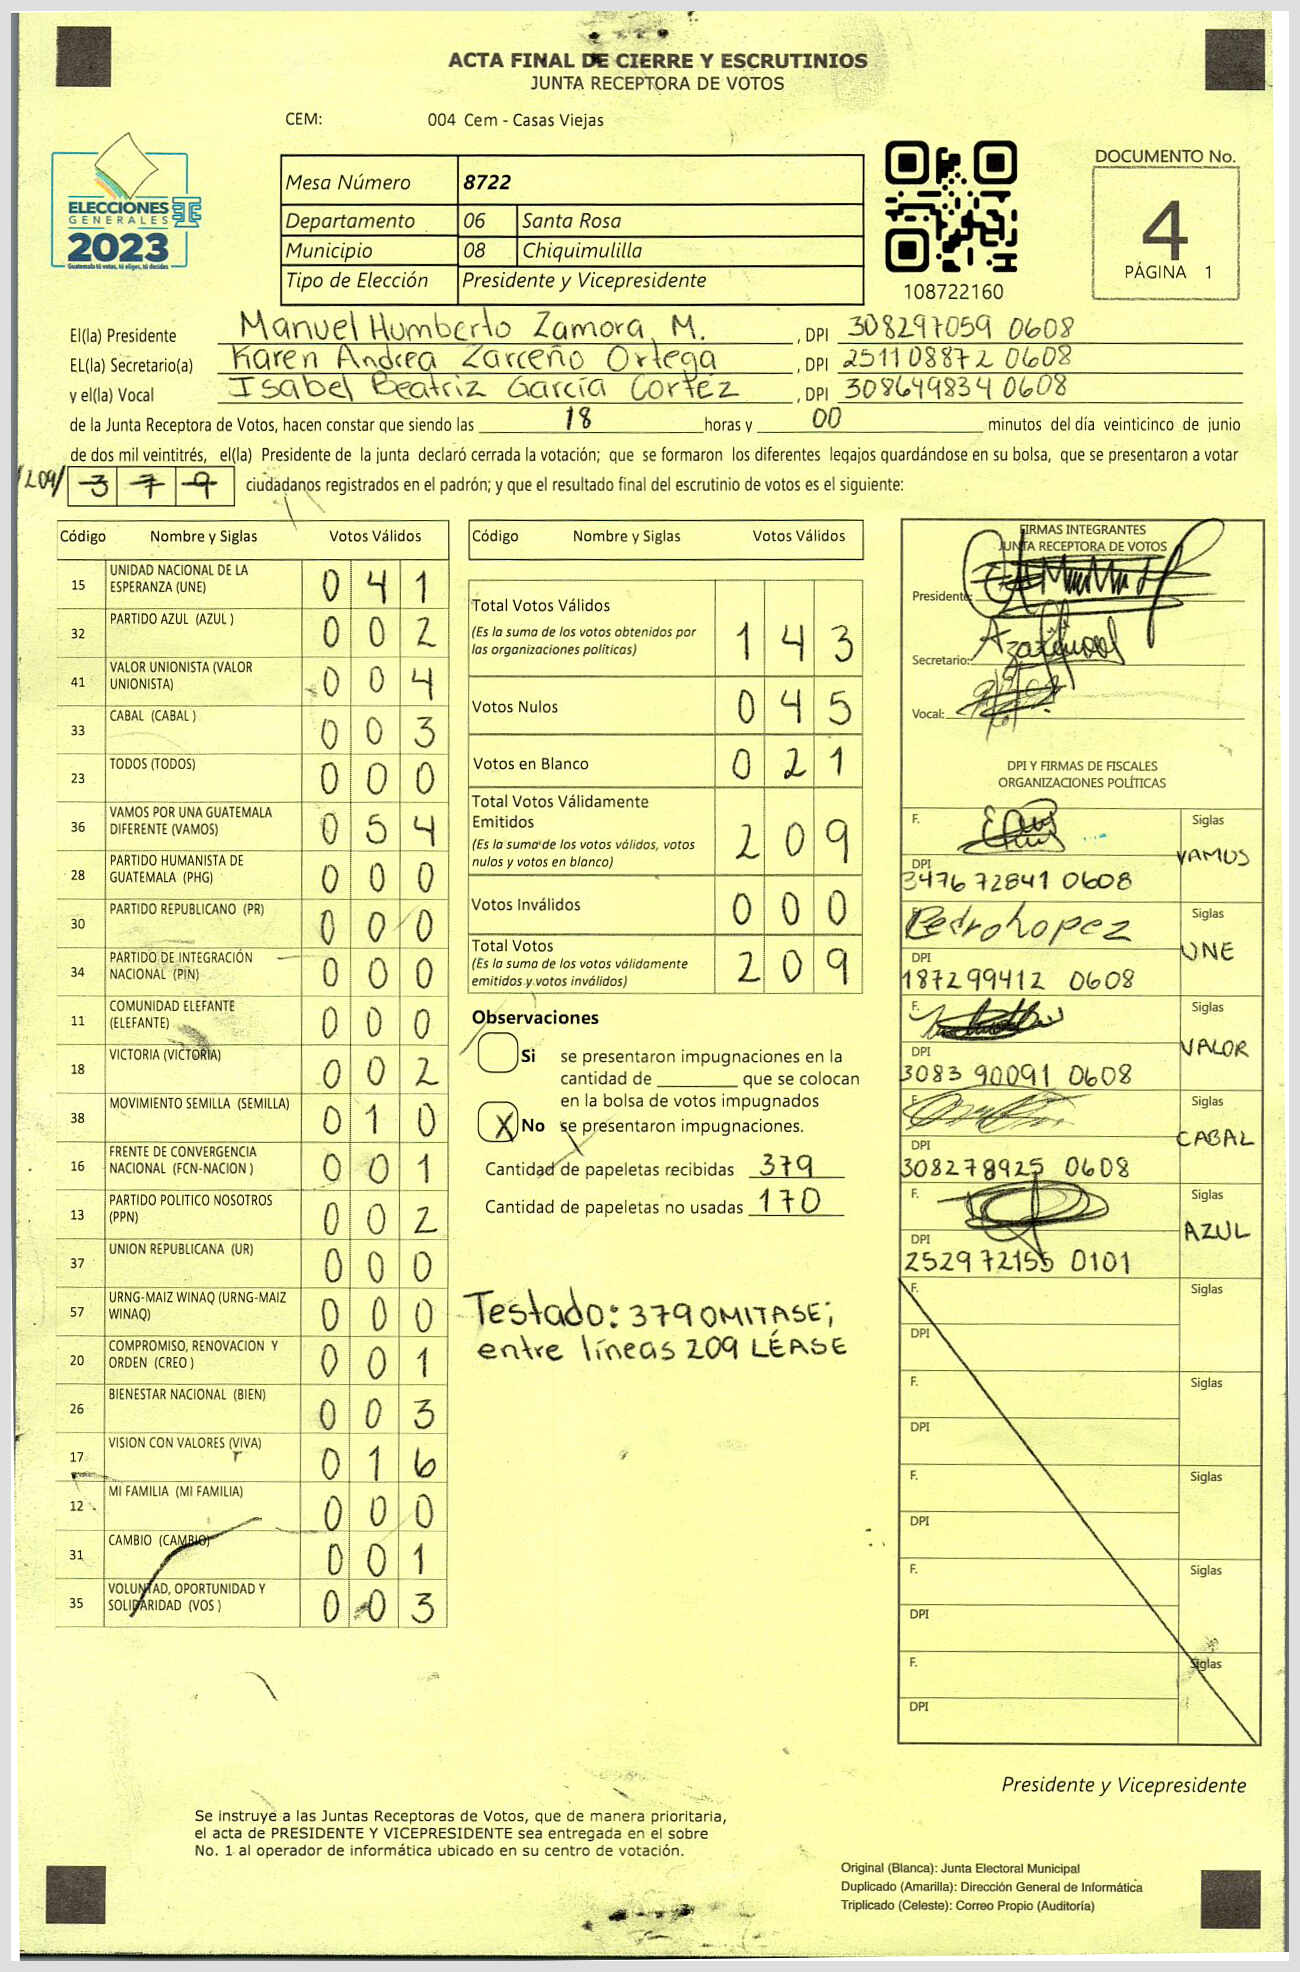 ACTA FINAL DE CIERRE Y ESCRUTINIOS
JUNTA RECEPTORA DE VOTOS
CEM: 004 Cem - Casas Viejas
ELECCIONES
GENERALES
2023
Guatemala tú votas, tú eliges, tú decides
Mesa Número 8722
Departamento 06 Santa Rosa
Municipio 08 Chiquimulilla
Tipo de Elección Presidente y Vicepresidente
108722160
DOCUMENTO No.
4
PÁGINA 1
El(la) Presidente Manuel Humberto Zamora M. , DPI 308297059 0608
EL(la) Secretario(a) Karen Andrea Zarceño Ortega , DPI 251108872 0608
y el(la) Vocal Isabel Beatriz García Cortéz , DPI 308649834 0608
de la Junta Receptora de Votos, hacen constar que siendo las 18 horas y 00 minutos del día veinticinco de junio
de dos mil veintitrés, el(la) Presidente de la junta declaró cerrada la votación; que se formaron los diferentes legajos quardándose en su bolsa, que se presentaron a votar
/209/ 3 7 9 ciudadanos registrados en el padrón; y que el resultado final del escrutinio de votos es el siguiente:
Código Nombre y Siglas Votos Válidos
15 UNIDAD NACIONAL DE LA ESPERANZA (UNE) 0 4 1
32 PARTIDO AZUL (AZUL ) 0 0 2
41 VALOR UNIONISTA (VALOR UNIONISTA) 0 0 4
33 CABAL (CABAL ) 0 0 3
23 TODOS (TODOS) 0 0 0
36 VAMOS POR UNA GUATEMALA DIFERENTE (VAMOS) 0 5 4
28 PARTIDO HUMANISTA DE GUATEMALA (PHG) 0 0 0
30 PARTIDO REPUBLICANO (PR) 0 0 0
34 PARTIDO DE INTEGRACIÓN NACIONAL (PIN) 0 0 0
11 COMUNIDAD ELEFANTE (ELEFANTE) 0 0 0
18 VICTORIA (VICTORIA) 0 0 2
38 MOVIMIENTO SEMILLA (SEMILLA) 0 1 0
16 FRENTE DE CONVERGENCIA NACIONAL (FCN-NACION ) 0 0 1
13 PARTIDO POLITICO NOSOTROS (PPN) 0 0 2
37 UNION REPUBLICANA (UR) 0 0 0
57 URNG-MAIZ WINAQ (URNG-MAIZ WINAQ) 0 0 0
20 COMPROMISO, RENOVACION Y ORDEN (CREO ) 0 0 1
26 BIENESTAR NACIONAL (BIEN) 0 0 3
17 VISION CON VALORES (VIVA) 0 1 6
12 MI FAMILIA (MI FAMILIA) 0 0 0
31 CAMBIO (CAMBIO) 0 0 1
35 VOLUNTAD, OPORTUNIDAD Y SOLIDARIDAD (VOS ) 0 0 3
Código Nombre y Siglas Votos Válidos
Total Votos Válidos
(Es la suma de los votos obtenidos por las organizaciones políticas) 1 4 3
Votos Nulos 0 4 5
Votos en Blanco 0 2 1
Total Votos Válidamente Emitidos
(Es la suma de los votos válidos, votos nulos y votos en blanco) 2 0 9
Votos Inválidos 0 0 0
Total Votos
(Es la suma de los votos válidamente emitidos y votos inválidos) 2 0 9
Observaciones
Si se presentaron impugnaciones en la
cantidad de ________ que se colocan
en la bolsa de votos impugnados
X No se presentaron impugnaciones.
Cantidad de papeletas recibidas 379
Cantidad de papeletas no usadas 170
Testado: 379 OMITASE;
entre líneas 209 LÉASE
FIRMAS INTEGRANTES
JUNTA RECEPTORA DE VOTOS
Presidente:
Secretario:
Vocal:
DPI Y FIRMAS DE FISCALES
ORGANIZACIONES POLÍTICAS
F. Siglas VAMOS
DPI 3476 72841 0608
F. Pedro Lopez Siglas UNE
DPI 187299412 0608
F. Siglas VALOR
DPI 3083 90091 0608
F. Siglas CABAL
DPI 308278925 0608
F. Siglas AZUL
DPI 2529 72155 0101
F. Siglas
DPI
F. Siglas
DPI
F. Siglas
DPI
F. Siglas
DPI
F. Siglas
DPI
Presidente y Vicepresidente
Se instruye a las Juntas Receptoras de Votos, que de manera prioritaria,
el acta de PRESIDENTE Y VICEPRESIDENTE sea entregada en el sobre
No. 1 al operador de informática ubicado en su centro de votación.
Original (Blanca): Junta Electoral Municipal
Duplicado (Amarilla): Dirección General de Informática
Triplicado (Celeste): Correo Propio (Auditoría)